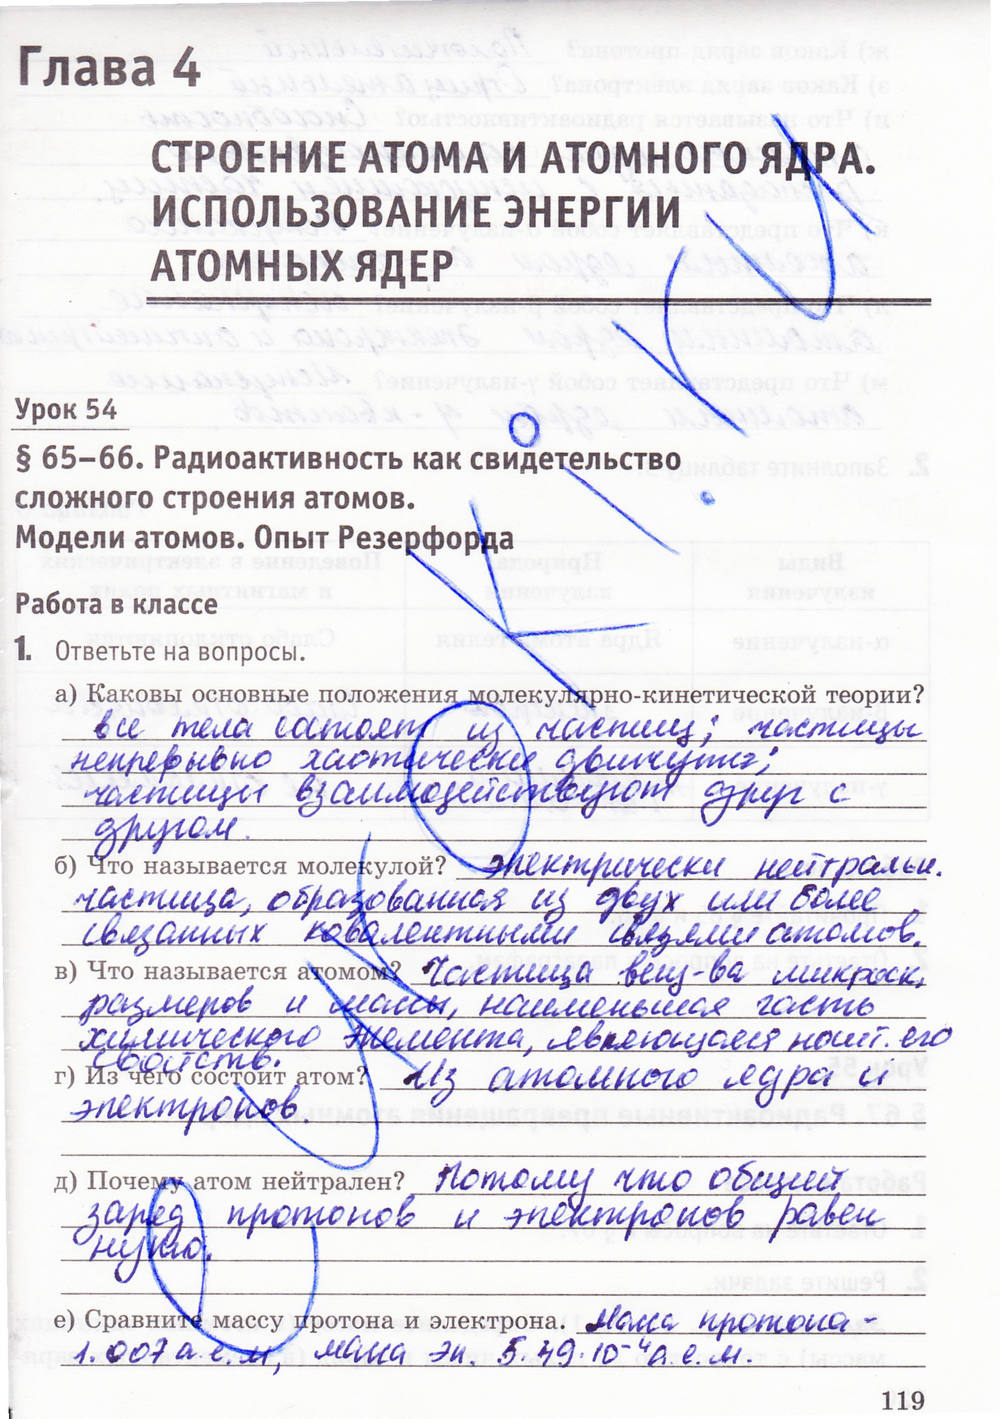 Глава 4
СТРОЕНИЕ АТОМА И АТОМНОГО ЯДРА.
ИСПОЛЬЗОВАНИЕ ЭНЕРГИИ
АТОМНЫХ ЯДЕР
Урок 54
§ 65–66. Радиоактивность как свидетельство
сложного строения атомов.
Модели атомов. Опыт Резерфорда
Работа в классе
1. Ответьте на вопросы.
а) Каковы основные положения молекулярно-кинетической теории?
все тела состоят из частиц; частицы
непрерывно хаотически движутся;
частицы взаимодействуют друг с
другом.
б) Что называется молекулой? электрически нейтральн.
частица, образованная из двух или более
связанных ковалентными связями атомов.
в) Что называется атомом? Частица вещ-ва микроск.
размеров и массы, наименьшая часть
химического элемента, являющаяся носит. его
свойств.
г) Из чего состоит атом? Из атомного ядра и
электронов.
д) Почему атом нейтрален? Потому что общий
заряд протонов и электронов равен
нулю.
е) Сравните массу протона и электрона. Масса протона -
1.007 а.е.м, масса эл. 5.49·10⁻⁴ а.е.м.
119